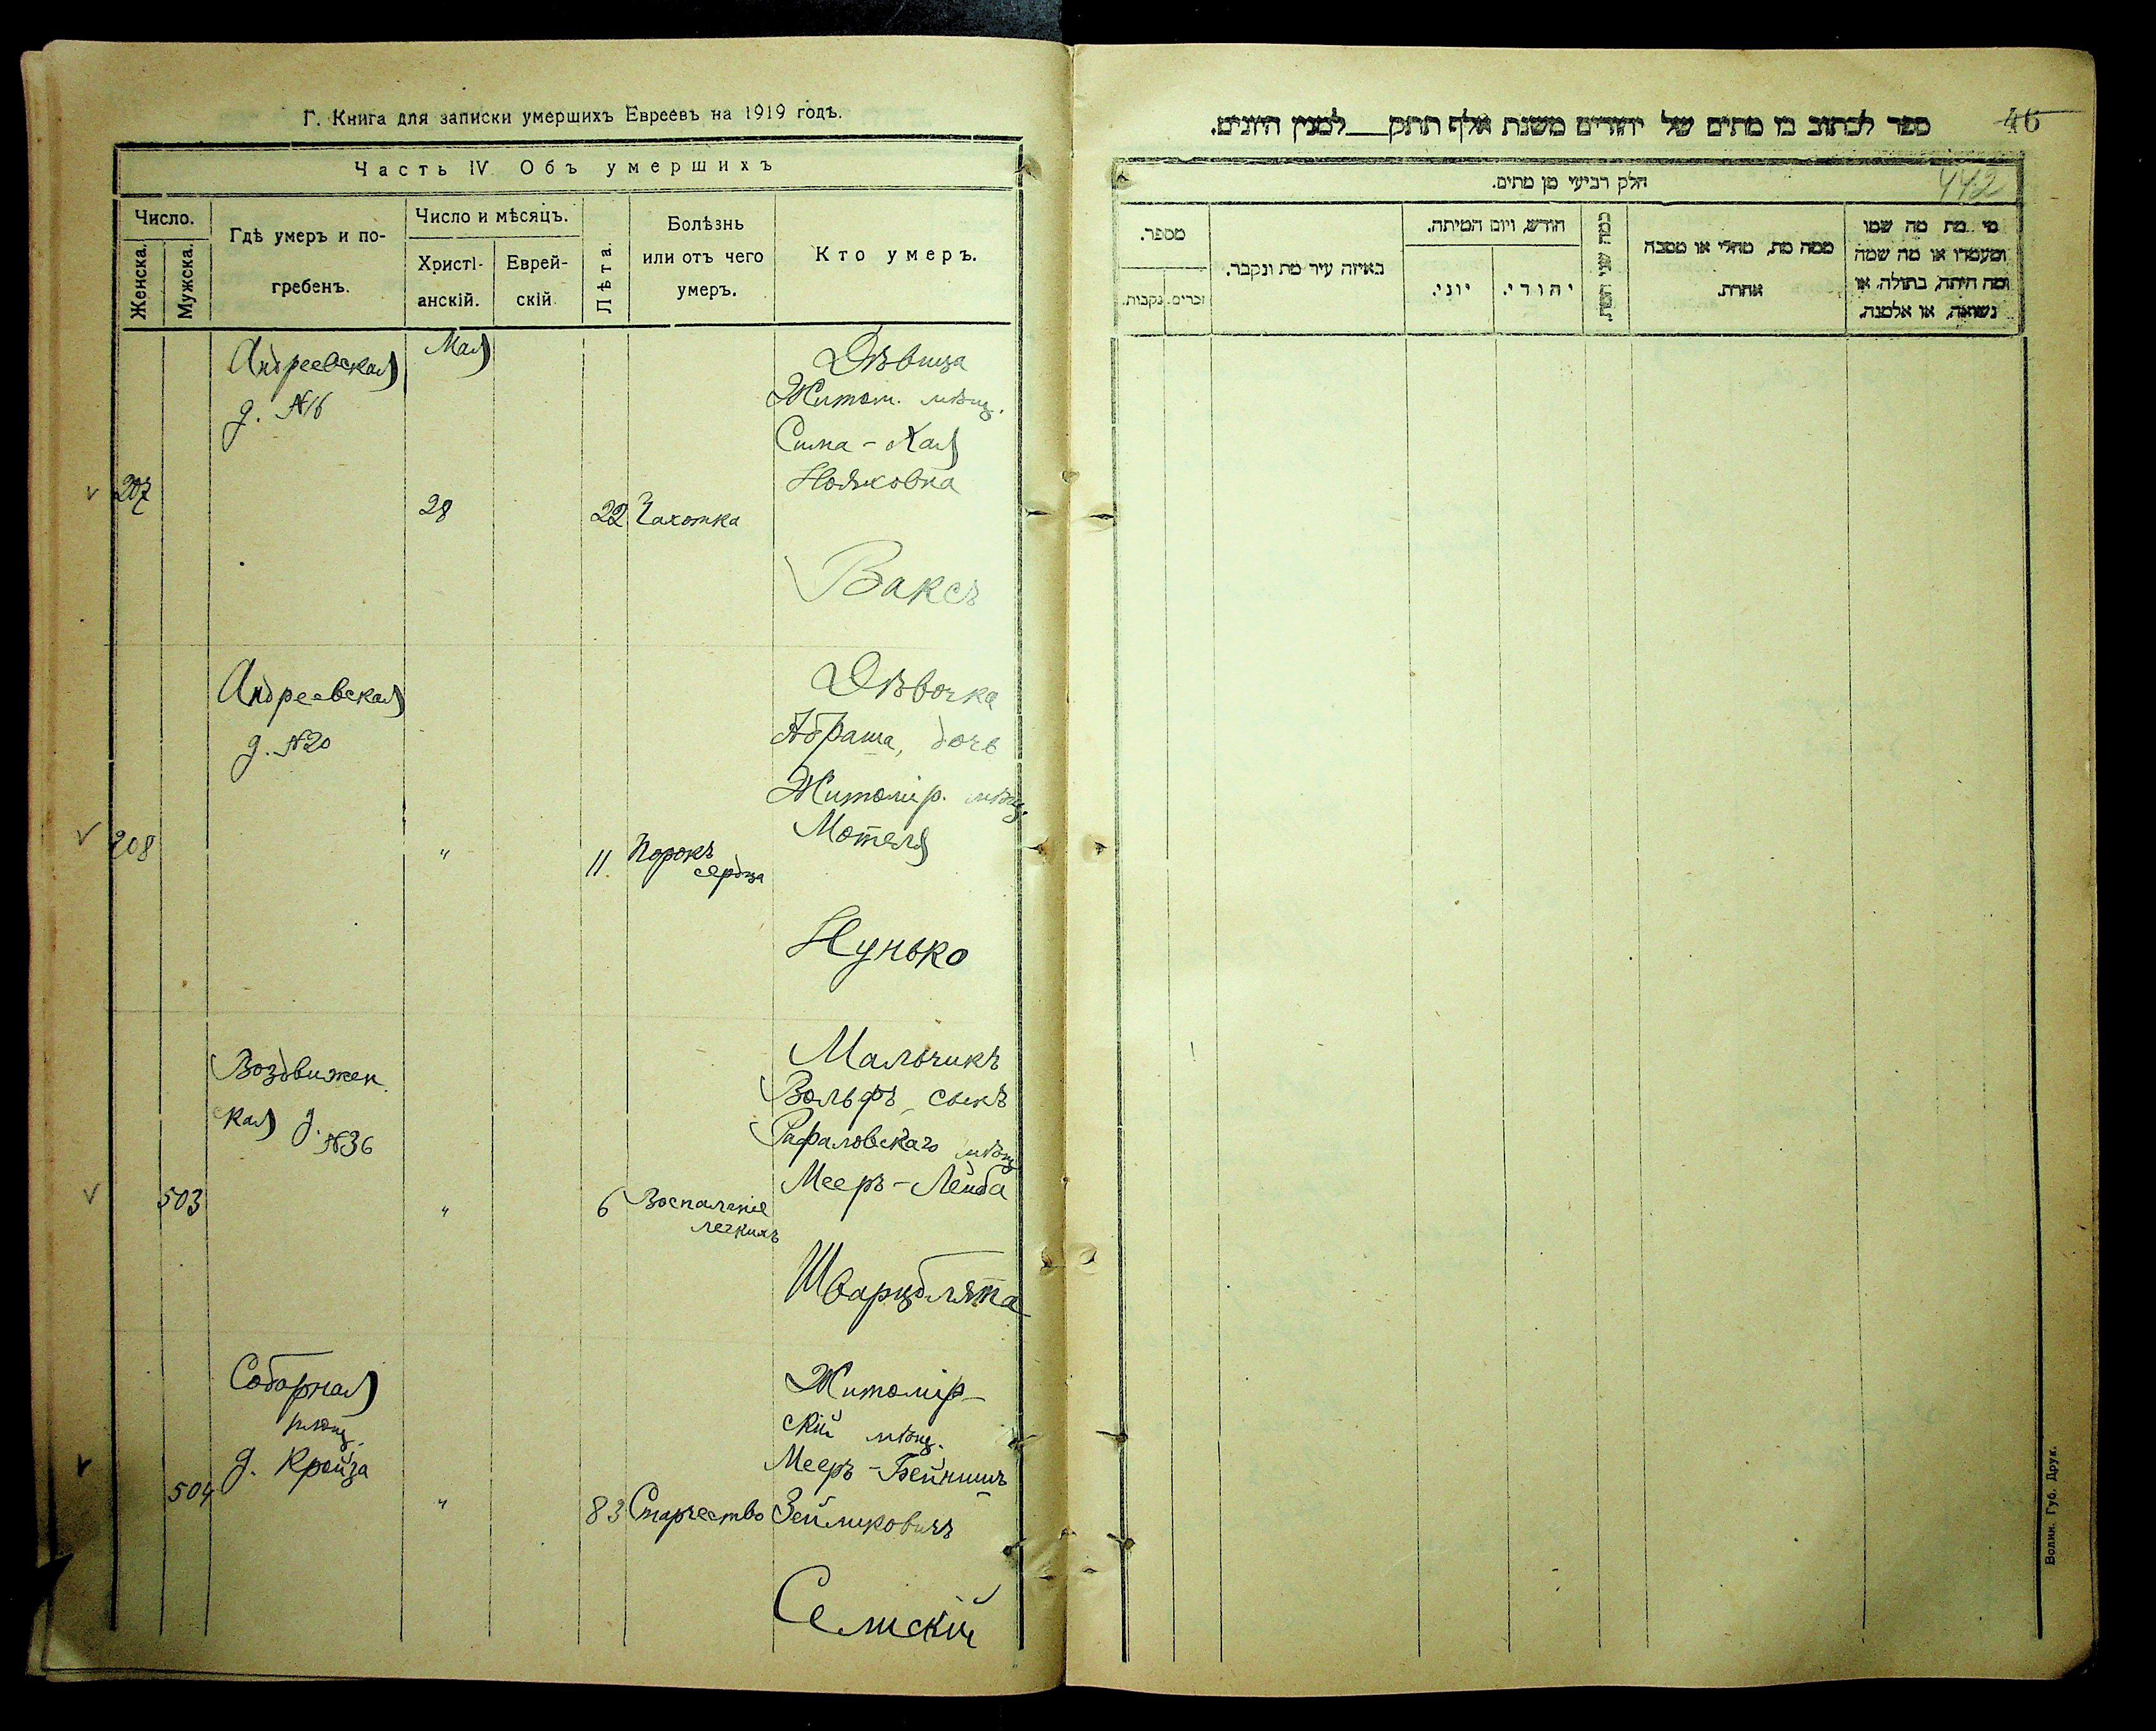 Г. Книга для записки умершихъ Евреевъ на 1919 годъ.
Часть IV Объ умершихъ
Число.
Женска.
Мужска.
Гдѣ умеръ и по-
гребенъ.
Число и мѣсяцъ.
Христі-
анскій.
Еврей-
скій
Лѣта.
Болѣзнь
или отъ чего
умеръ.
Кто умеръ.
207
Андреевская
д. №16
Мая
28
22
Чахотка
Дѣвица
Житом. мѣщ.
Сима-Хая
Ноякоовна
Ваксъ
208
Андреевская
д. №20
"
11.
Порокъ
сердца
Дѣвочка
Абраша, дочь
Житомір. мѣщ.
Мотеля
Нунько
503
Воздвижен
ская д.
№36
"
6
Воспаленіе
легкихъ
Мальчикъ
Вольфъ сынъ
Рафаловскаго мѣщ
Мееръ-Лейба
Шварцблята
504
Соборная
площ.
д. Кройза
"
83
Старчество
Житомір-
скій мѣщ.
Мееръ-Бейнишъ
Зейликовичъ
Семскій
46
ספר לכתוב בו מתים של יהודים משנת אלף תתק למנין היונים.
442
חלק רביעי מן מתים.
מי מת מה שמו
ומעמדו או מה שמה
ומה היתה, בתולה, או
נשואה, או אלמנה.
ממה מת, מחלי או מסבה
אחרת.
כמה שני
חודש, ויום המיתה.
יהודי.
יוני.
באיזה עיר מת ונקבר.
מספר.
זכרים.
נקבות.
Волин. Губ. Друк.